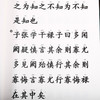 之为知之不知为不知
是知也
子张学干禄子曰多闻
阙疑慎言其余则寡尤
多见阙殆慎行其余则
寡悔言寡尤行寡悔禄
在其中矣